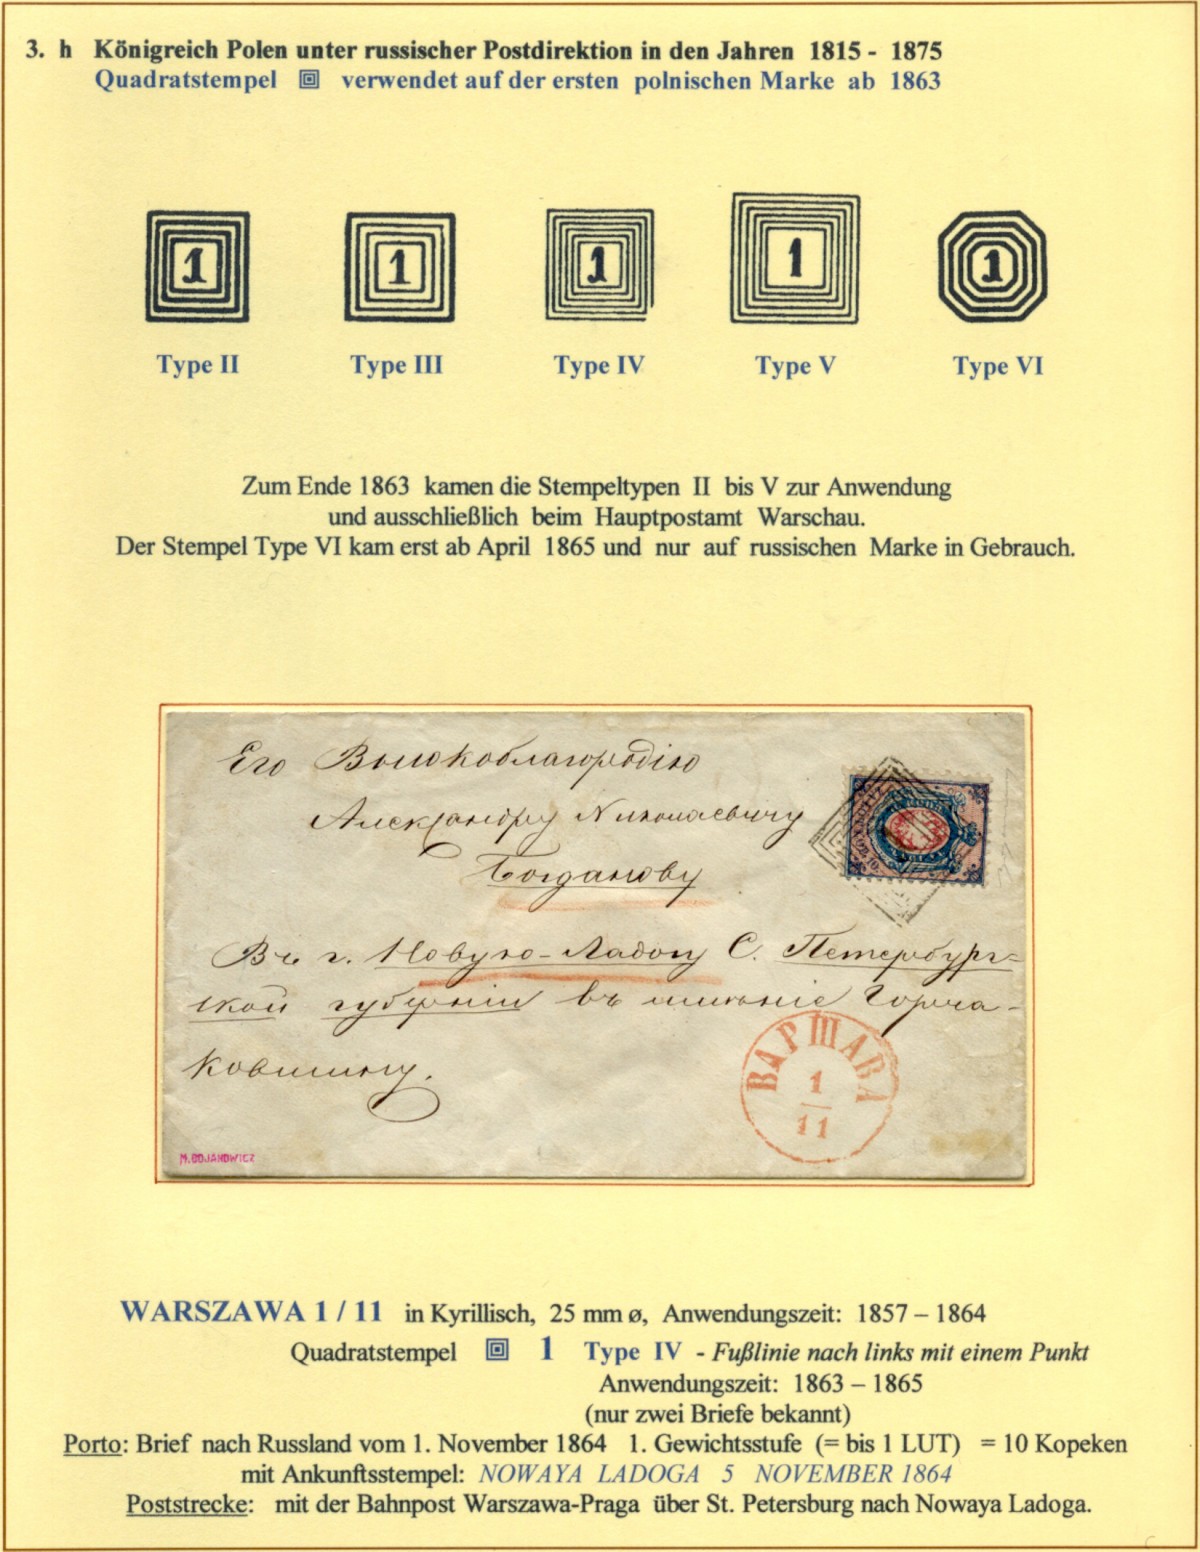 3. h Königreich Polen unter russischer Postdirektion in den Jahren 1815 - 1875
Quadratstempel verwendet auf der ersten polnischen Marke ab 1863
1 1 1 1 1
Type II Type III Type IV Type V Type VI
Zum Ende 1863 kamen die Stempeltypen II bis V zur Anwendung
und ausschließlich beim Hauptpostamt Warschau.
Der Stempel Type VI kam erst ab April 1865 und nur auf russischen Marke in Gebrauch.
Его Высокоблагородію
Александру Николаевичу
Богданову
Въ г. Новую-Ладогу С. Петербург-
ской губерніи въ имѣніе Горча-
ковщину.
ВАРШАВА
1
11
M.BOJANOWICZ
WARSZAWA 1 / 11 in Kyrillisch, 25 mm ø, Anwendungszeit: 1857 – 1864
Quadratstempel 1 Type IV - Fußlinie nach links mit einem Punkt
Anwendungszeit: 1863 – 1865
(nur zwei Briefe bekannt)
Porto: Brief nach Russland vom 1. November 1864 1. Gewichtsstufe (= bis 1 LUT) = 10 Kopeken
mit Ankunftsstempel: NOWAYA LADOGA 5 NOVEMBER 1864
Poststrecke: mit der Bahnpost Warszawa-Praga über St. Petersburg nach Nowaya Ladoga.